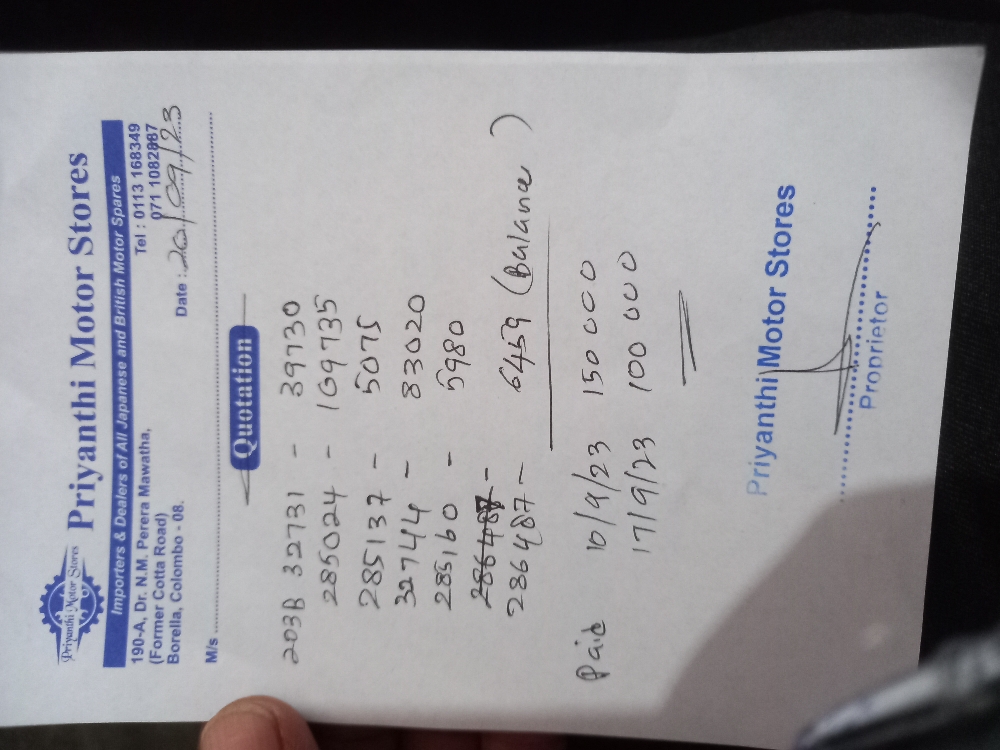 Priyanthi Motor Stores
Priyanthi Motor Stores
Importers & Dealers of All Japanese and British Motor Spares
190-A, Dr. N.M. Perera Mawatha,
(Former Cotta Road)
Borella, Colombo - 08.
Tel : 0113 168349
071 1082887
Date : 20/09/23
M/s
Quotation
203B 32731 - 39730
285024 - 169735
285137 - 5075
32744 - 83020
285160 - 5980
286487 -
286487 - 6459 (Balance)
Paid 10/9/23 150 000
17/9/23 100 000
Priyanthi Motor Stores
Proprietor